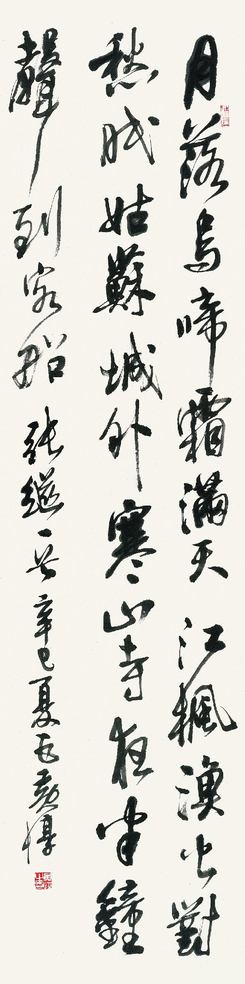 月落烏啼霜滿天江楓漁火對
愁眠姑蘇城外寒山寺夜半鐘
聲到客船張繼一首辛巳夏黃惇